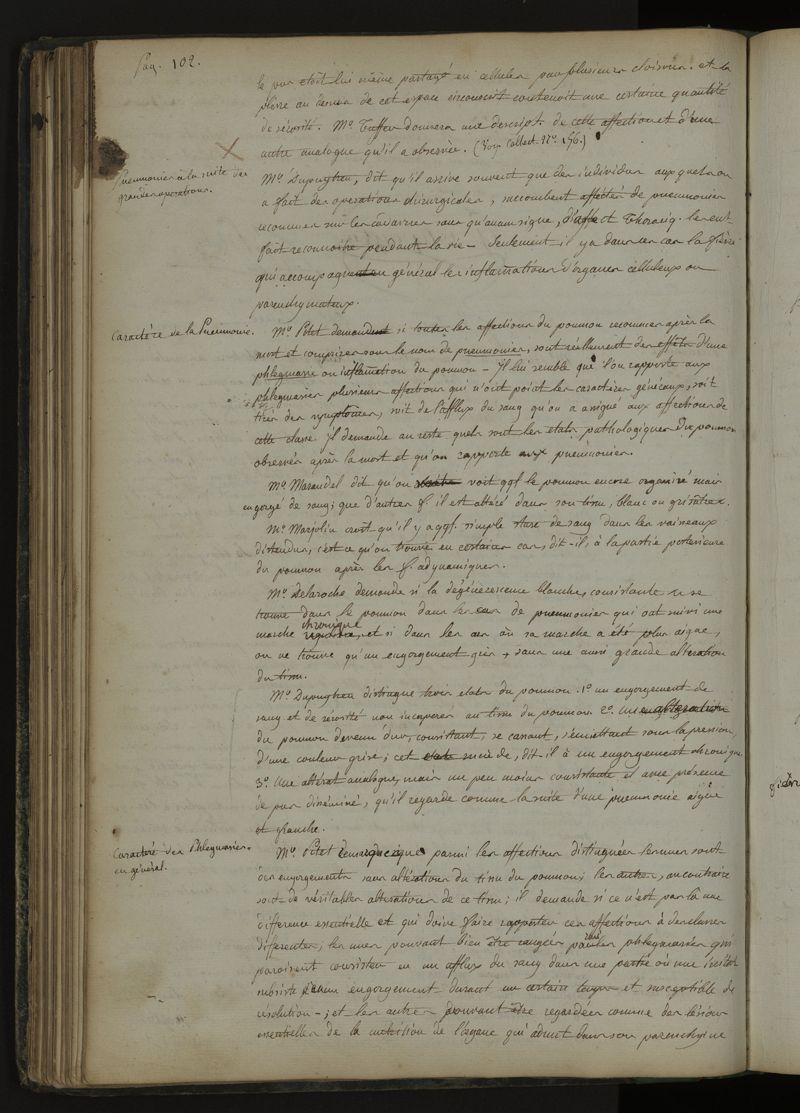 Pag. 102.
le pus etoit lui même partagé en cellules par plusieurs cloisons. et la
plèvre au dessus de cet espace circonscrit contenoit une certaine quantité
de sérosité. Mr. Tuffer donnera une descript. de cette affection et d'une
autre analogue qu'il a observée. (Voy. Collect. No. 156.)
Pneumonies à la suite des
grandes operations.
Mr. Dupuytren, dit qu'il arrive souvent que des individus auxquels on
a fait des operations chirurgicales, succombent affectés de pneumonies
reconnues sur les cadavres sans qu'aucun signe, d'affect Thoraciq. les eut
fait reconnoitre pendant la vie - Seulement il y a dans ces cas la fièvre
qui accompagne en général les inflammations d'organes celluleux ou
parenchymateux.
Caractère de la Pneumonie.
Mr. Petit demande si toutes les affections du poumon reconnues après la
mort et comprises sous le nom de pneumonies, sont réellement des effets d'une
phlegmasie ou inflammation du poumon - Il lui semble que l'on rapporte aux
phlegmasies plusieurs affections qui n'ont point les caractères généraux, soit
tirés des symptômes, soit de l'afflux du sang qu'on a assigné aux affections de
cette classe. Il demande au reste quels sont les etats pathologiques du poumon
observés après la mort et qu'on rapporte aux pneumonies.
Mr. Marandel dit qu'on voit qqf. le poumon encore organisé mais
engorgé de sang; que d'autres f. il est altéré dans son tissu, blanc ou grisâtre.
Mr. Marjolin croit qu'il y a qqf. simple stase de sang dans les vaisseaux
distendus, c'est ce qu'on trouve en certains cas, dit-il, à la partie posterieure
du poumon après les f. adynamiques.
Mr. Delaroche demande si la dégénérescence blanche, consistante se
trouve dans le poumon dans les cas de pneumonies qui ont suivi une
marche chronique, et si dans les cas où sa marche a été plus aigue,
on ne trouve qu'un engorgement gris, sans une aussi grande altération
du tissu.
Mr. Dupuytren distingue trois etats du poumon. 1o. un engorgement de
sang et de sérosité non incorporés au tissu du poumon. 2o. une altération
du poumon devenu dur, consistant, se cassant, s'émiettant sous la pression,
d'une couleur grise; cet succède, dit-il à un engorgement chronique.
3o. Une altérat. analogue, mais un peu moins consistante et avec présence
de pus disséminé, qu'il regarde comme la suite d'une pneumonie aigüe
et franche.
Caractère des Phlegmasies
en général.
Mr. Petit remarque que parmi les affections distinguées les unes sont
des engorgements sans altérations du tissu du poumon; les autres, au contraire
sont de véritables altérations de ce tissu; il demande si ce n'est pas là une
différence essentielle et qui doive faire rapporter ces affections à des classes
differentes; les unes pouvant bien être rangées parmi les phlegmasies qui
paroissent consister en un afflux du sang dans une partie où une
subsiste engorgement durant un certain temps et susceptible de
résolution -; et les autres pouvant être regardées comme des lésions
essentielles de la nutrition de l'organe qui dans son parenchyme